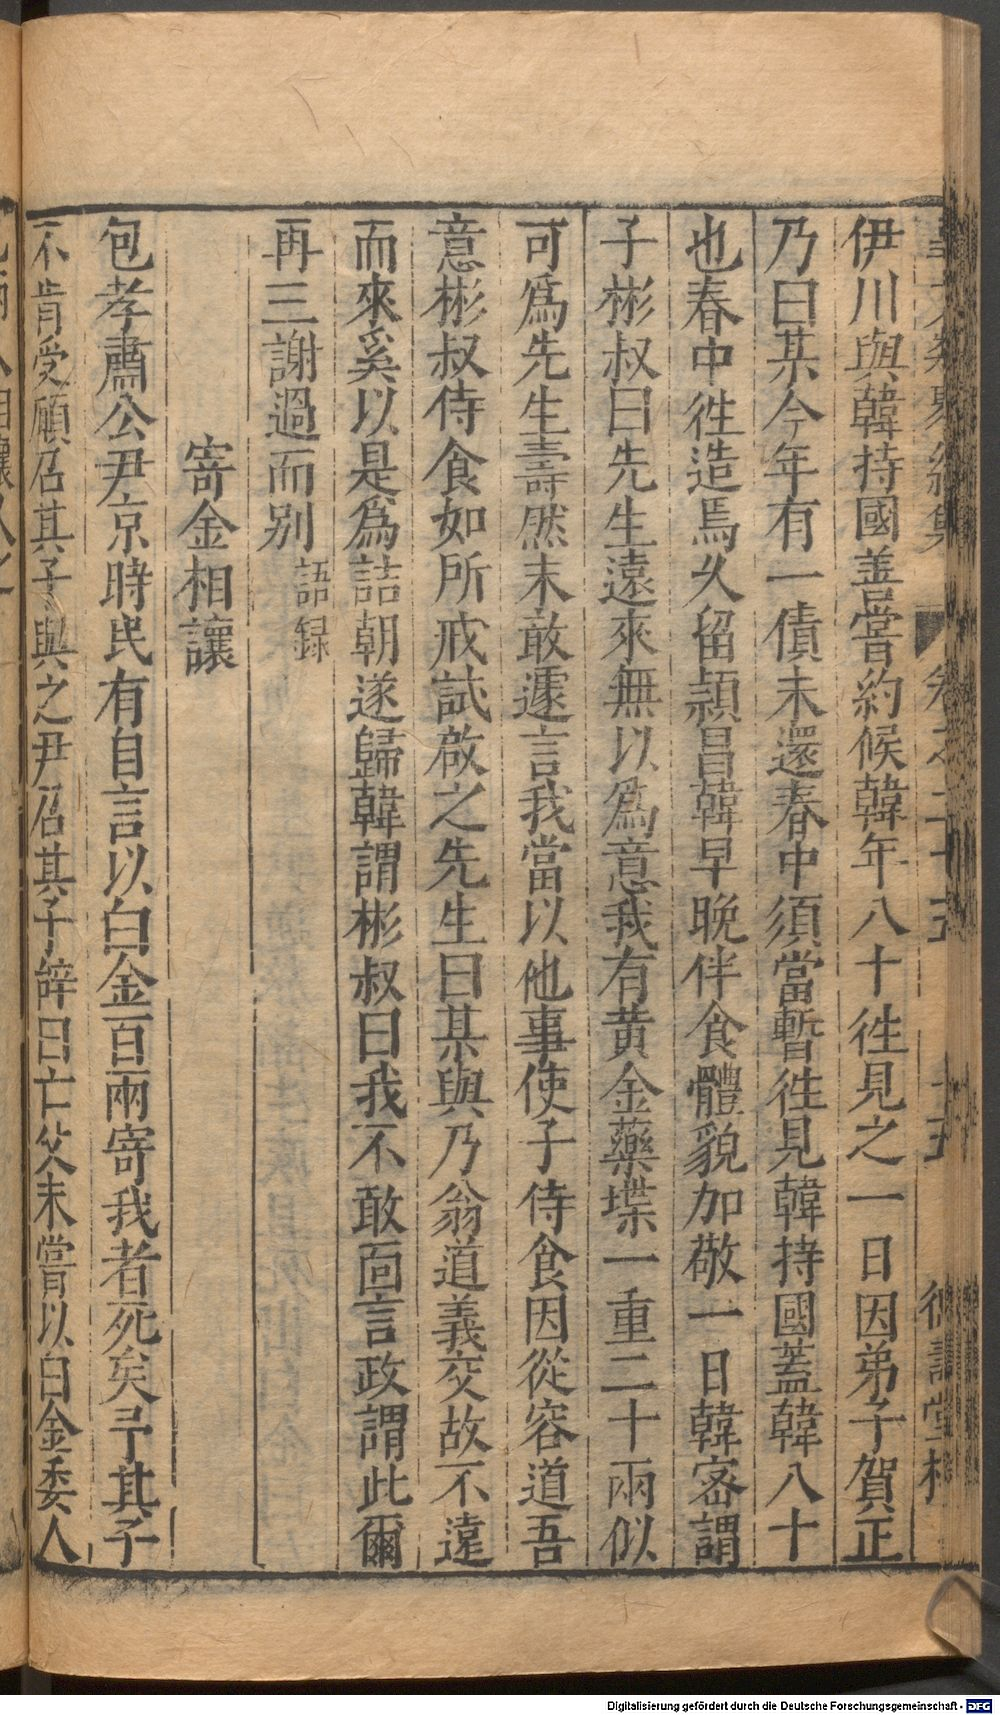 伊川與韓持國善嘗約候韓年八十徃見之一日因弟子賀正
乃曰某今年有一債未還春中須當暫徃見韓持國蓋韓八十
也春中徃造焉久留頴昌韓早晚伴食體貌加敬一日韓密謂
子彬叔曰先生遠來無以爲意我有黄金藥楪一重二十兩似
可爲先生壽然未敢遽言我當以他事使子侍食因從容道吾
意彬叔侍食如所戒試啟之先生曰某與乃翁道義交故不遠
而來奚以是爲詰朝遂歸韓謂彬叔曰我不敢靣言政謂此爾
再三謝過而别 語録
寄金相讓
包孝肅公尹京時民有自言以白金百兩寄我者死矣予其子
不肯受願召其子與之尹召其子辭曰亡父未嘗以白金委人
Digitalisierung gefördert durch die Deutsche Forschungsgemeinschaft - DFG